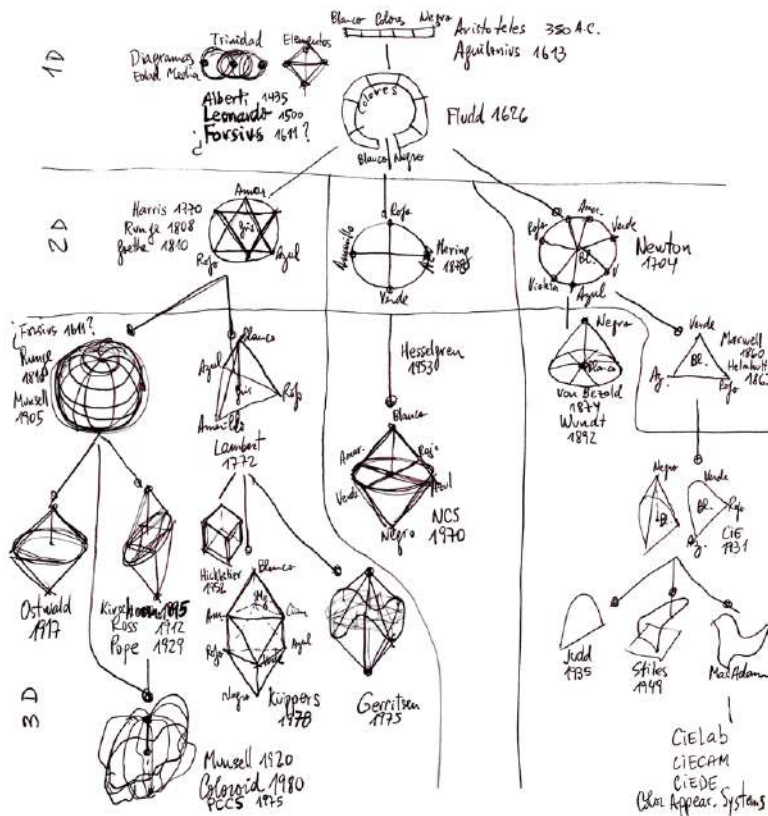 1D
Blanco Colores Negro
Aristoteles 350 A.C.
Aguilonius 1613
Trinidad
Elementos
Diagramas
Edad Media
Alberti 1435
Leonardo 1500
¿Forsius 1611?
Colores
Blanco Negro
Fludd 1626
2D
Harris 1770
Runge 1808
Goethe 1810
Amar.
Gris
Rojo Azul
Rojo
Amarillo
Verde
Hering
Rojo Amar. Verde
Bl.
Violeta Azul V
Newton
1704
¿Forsius 1611?
Runge
Munsell
1905
Blanco
Azul
Gris
Rojo
Amarillo
Lambert
1772
Hesselgren
1953
Blanco
Amar. Rojo
Verde Azul
Negro
NCS
1970
Negro
Blanco
von Bezold
1874
Wundt
1892
Verde
Bl.
Az. Rojo
Maxwell
1860
Helmholtz
Negro
Bl.
Verde
Bl.
Rojo
Az.
CIE
1931
3D
Ostwald
1917
Kirschmann 1895
Ross 1912
Pope 1929
Hickethier
Blanco
Am. Cian
Rojo Azul
Negro
Küppers
1978
Gerritsen
1975
Judd
1935
Stiles
1949
MacAdam
Munsell 1920
Coloroid 1980
PCCS 1975
CIELab
CIECAM
CIEDE
Color Appear. Systems